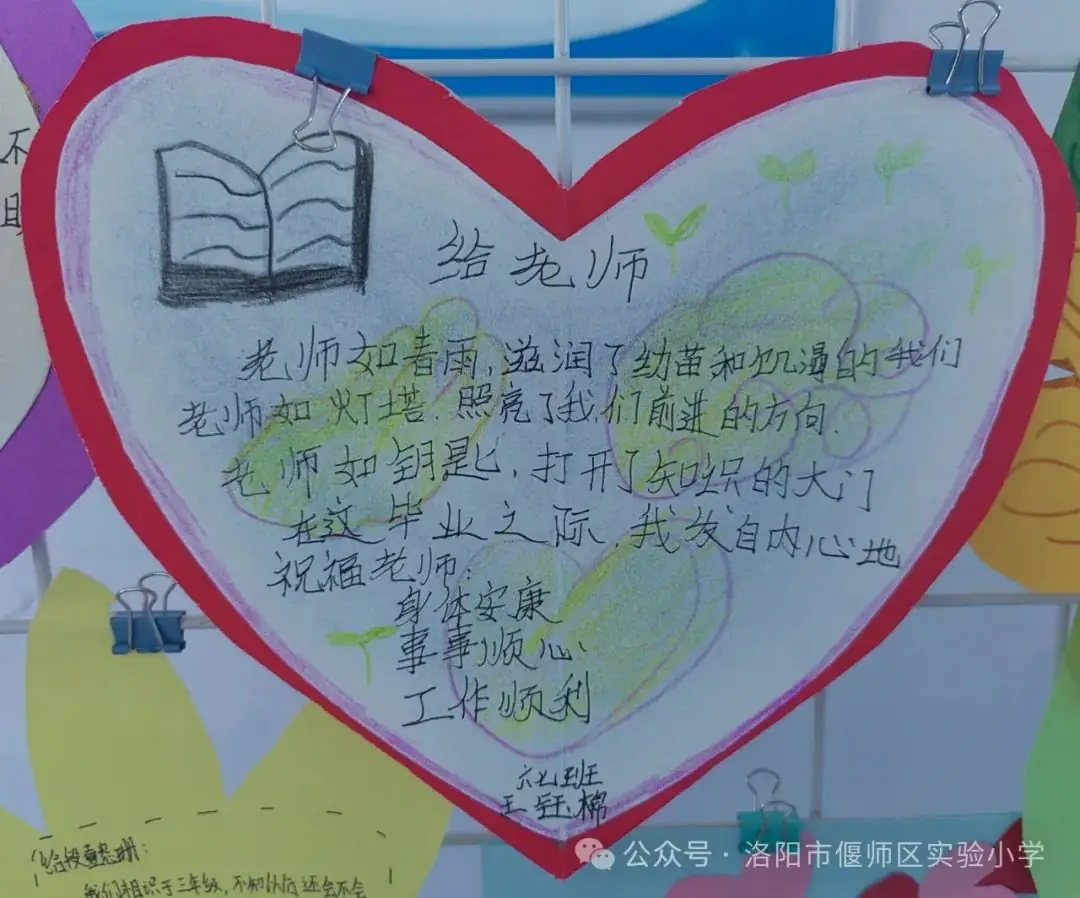 给老师
老师如春雨,滋润了幼苗和饥渴的我们
老师如灯塔.照亮了我们前进的方向.
老师如钥匙,打开了知识的大门
在这毕业之际 我发自内心地
祝福老师:
身体安康
事事顺心
工作顺利
六七班
王钰棉
不
且
我们相识于三年级,不知以后还会不会
公众号·洛阳市偃师区实验小学